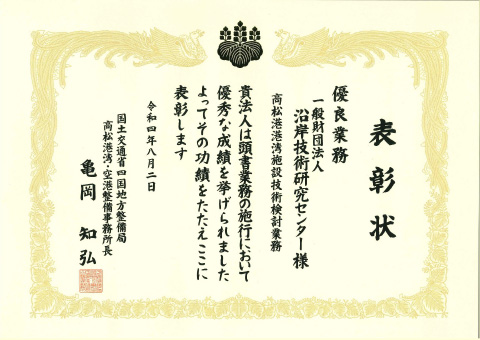 表彰状
優良業務
一般財団法人
沿岸技術研究センター様
高松港港湾施設技術検討業務
貴法人は頭書業務の施行において
優秀な成績を挙げられました
よってその功績をたたえここに
表彰します
令和四年八月二日
国土交通省四国地方整備局
高松港湾・空港整備事務所長
亀岡知弘